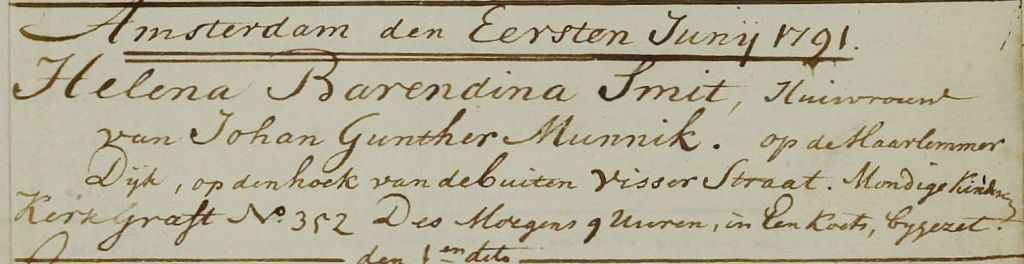 Amsterdam den Eersten Junij 1791.
Helena Barendina Smit, Huisvrouw
van Johan Gunther Munnik. op de Haarlemmer
Dijk, op den hoek van de buiten Visser Straat. Mondige Kinderen
Kerk Graft No. 352 Des Morgens 9 Uuren, in Een Koets, bygezet.
den 1en dito